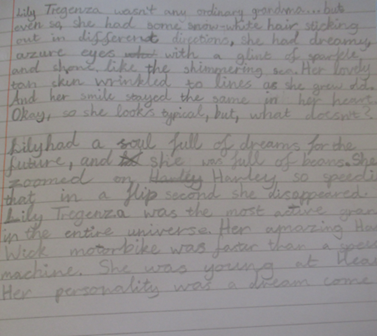 Lily Tregenza wasn't any ordinary grandma...but
even so she had some snow-white hair sticking
out in different directions, she had dreamy,
azure eyes with a glint of sparkle
and shone like the shimmering sea. Her lovely
tan skin wrinkled to lines as she grew old.
And her smile stayed the same in her heart.
Okay, so she looks typical, but, what doesn't?
Lily had a soul full of dreams for the
future, and she was full of beans. She
zoomed on Harley Harley, so speedi
that in a flip second she disappeared.
Lily Tregenza was the most active gran
in the entire universe. Her amazing Ha
Wick motorbike was faster than a spee
machine. She was young at hear
Her personality was a dream come